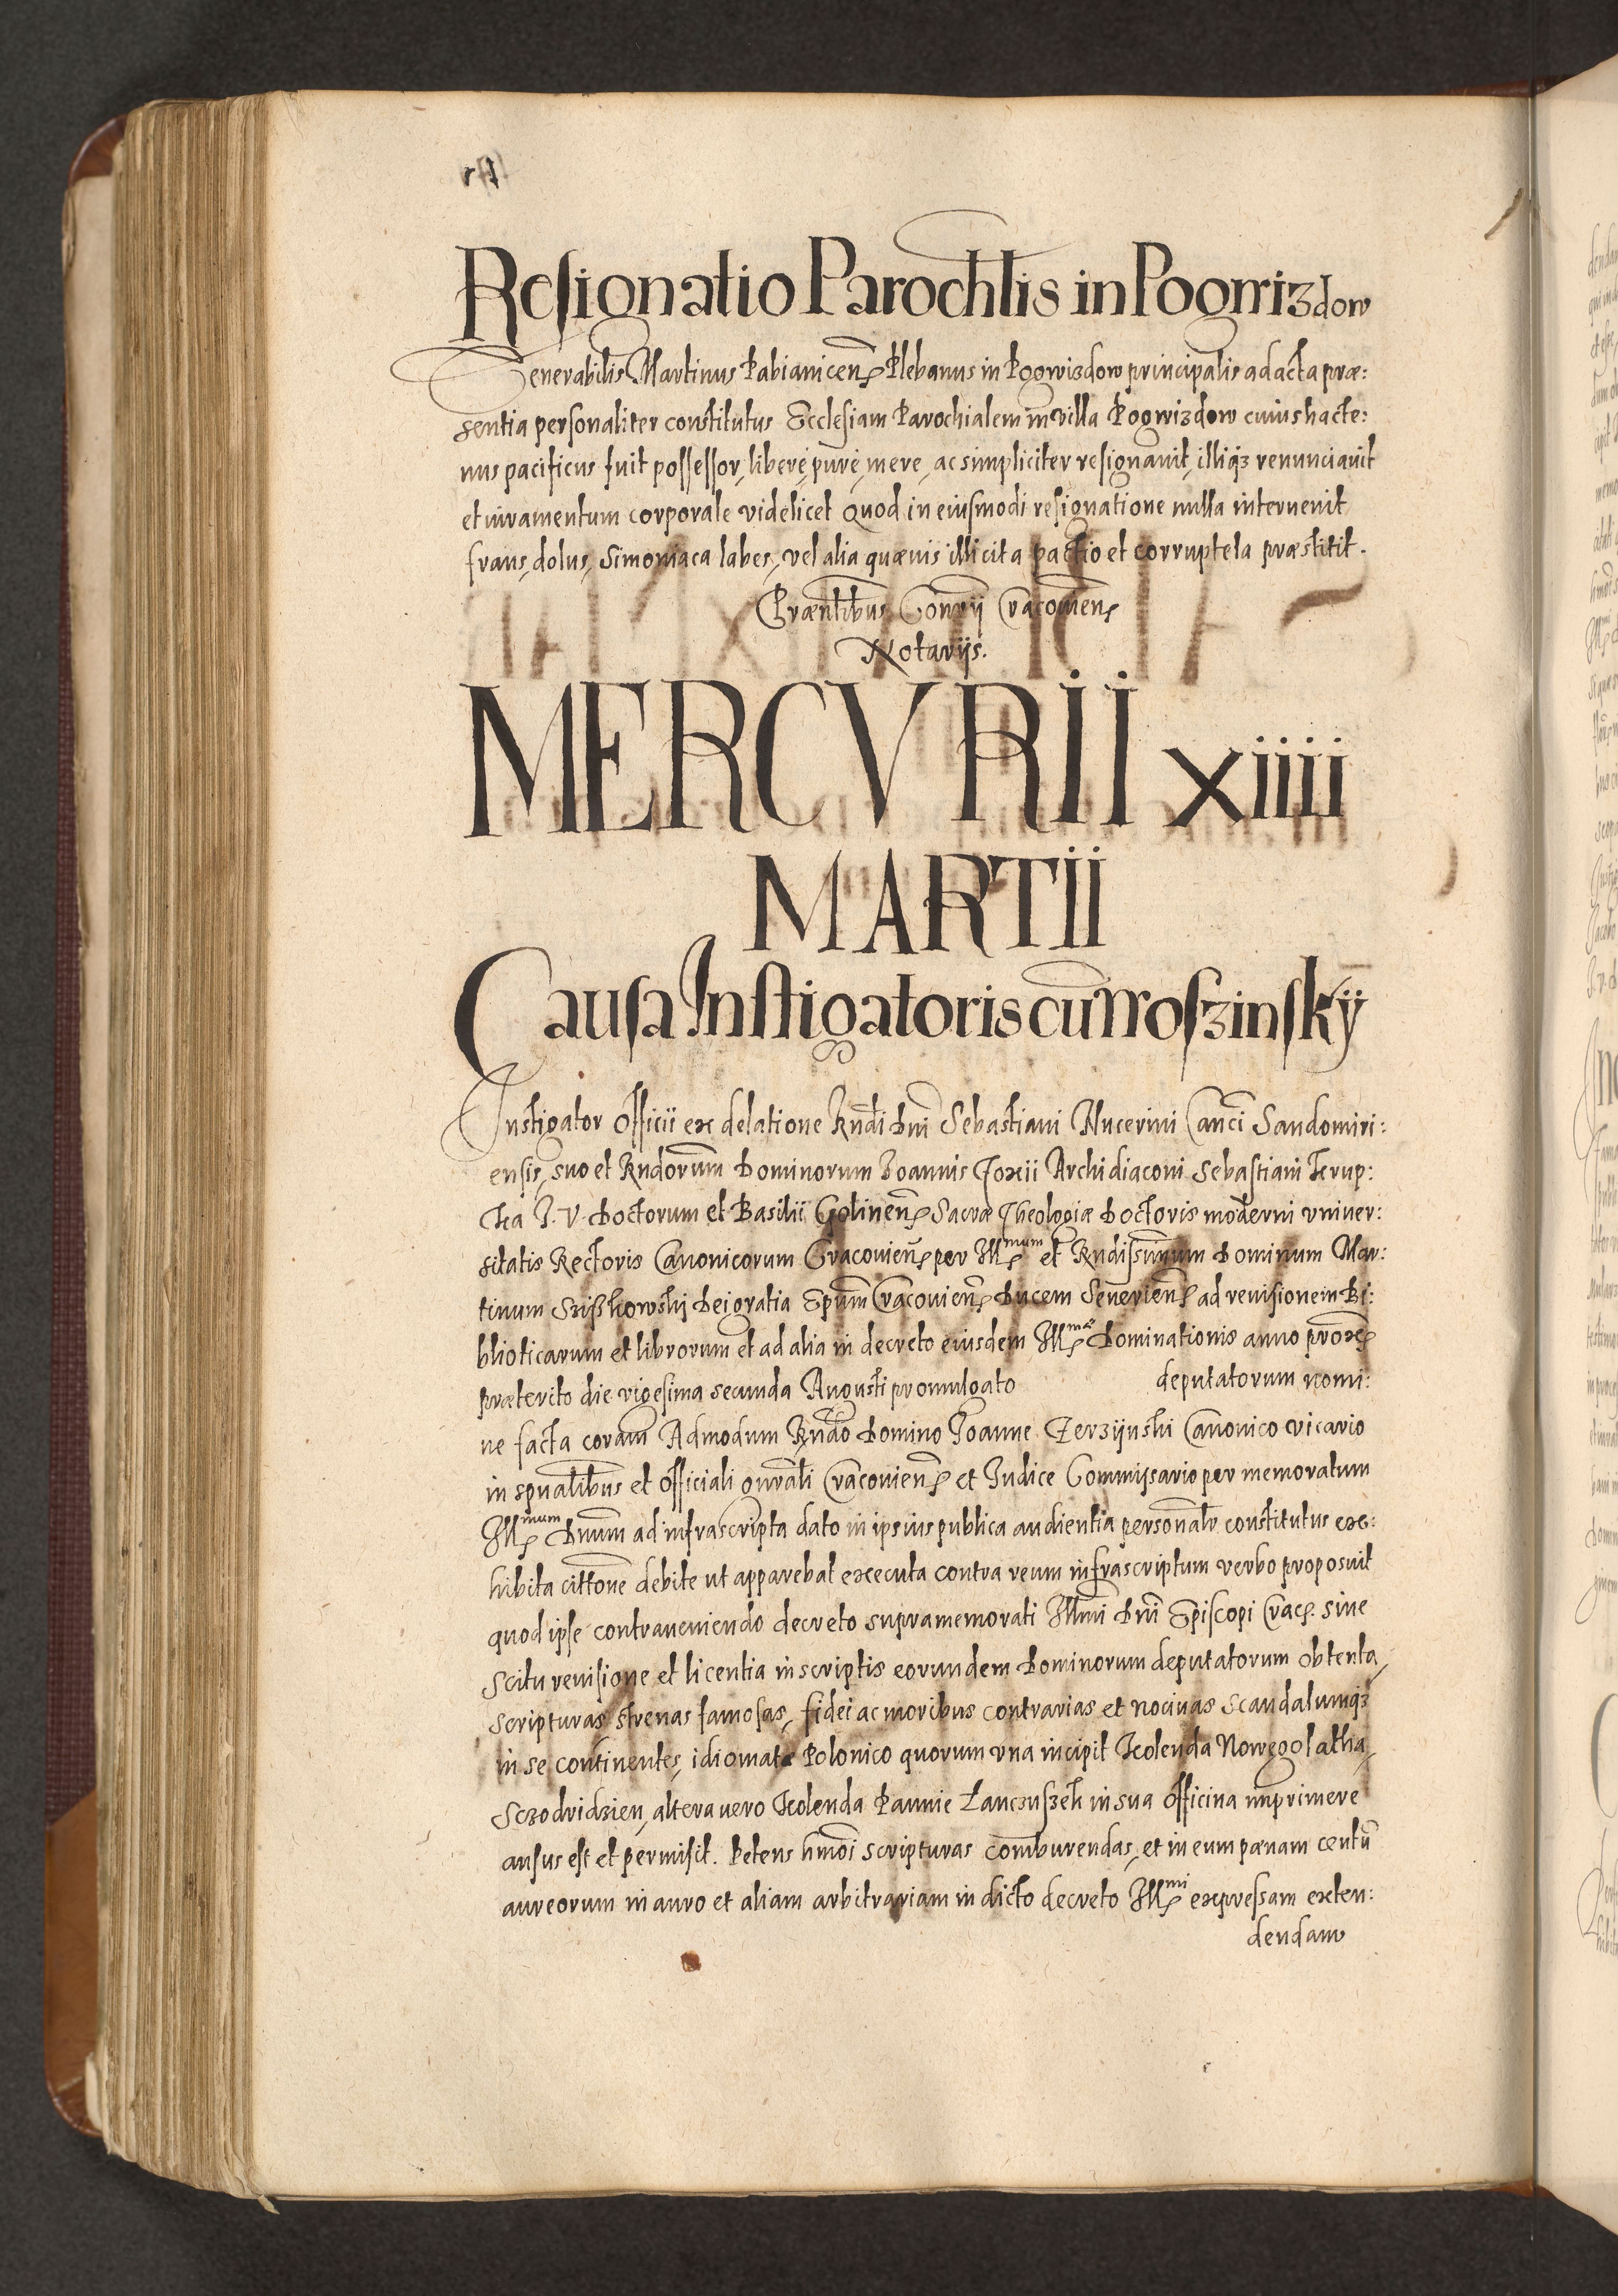 Resignatio Parochlis in Pogwizdow
Venerabilis Martinus Pabianicen Plebanus in Pogwizdow principalis ad acta præ:
sentia personaliter constitutus Ecclesiam Parochialem in villa Pogwizdow cuius hacte:
nus pacificus fuit possessor, libere, pure, mere, ac simpliciter resignavit, illiq3 renunciavit
et iuramentum corporale videlicet Quod in eiusmodi resignatione nulla intervenit
fraus, dolus, Simoniaca labes, vel alia quævis illicita pactio et corruptela præstitit.
Præntibus Consrij Cracovien
Notarijs.
MERCVRII xiiii
MARTII
Causa Instigatoris cū Woszinskÿ
Instigator Officii ex delatione Rndi Dni Sebastiani Nucerini Canci Sandomiri:
ensis, suo et Rndorum Dominorum Joannis Foxii Archidiaconi, Sebastiani Krup:
ka J. V. Doctorum et Basilii Golinen Sacræ Theologiæ Doctoris moderni vniver:
sitatis Rectoris Canonicorum Cracovien per Illmum et Rndissimum Dominum Mar:
tinum Szißkowskj Dei gratia Epum Cracovien Ducem Severien ad revisionem Bi:
blioticarum et librorum et ad alia in decreto eiusdem Illmæ Dominationis anno proxe
præterito die vigesima secunda Augusti promulgato deputatorum nomi:
ne facta coram Admodum Rndo Domino Joanne Zerzijnski Canonico vicario
in spualibus et Officiali gnrali Cracovien et Judice Commissario per memoratum
Illmum Dnum ad infrascripta dato in ipsius publica audientia personalr constitutus exe:
hibita cittone debite ut apparebat executa contra reum infrascriptum verbo proposuit
quod ipse contraveniendo decreto supramemorati Illmi Dni Episcopi Crac. sine
scitu revisione et licentia in scriptis eorundem Dominorum deputatorum obtenta,
scripturas strenas famosas, fidei ac moribus contrarias et nocivas Scandalumq3
in se continentes, idiomate Polonico quorum vna incipit Kolenda Nowego latha,
Sczodridzien, altera vero Kolenda Pannie Lanczuszek in sua Officina imprimere
ausus est et permisit. Petens hmoi scripturas comburendas, et in eum pænam centū
aureorum in auro et aliam arbitrariam in dicto decreto Illmi expressam exten:
dendam